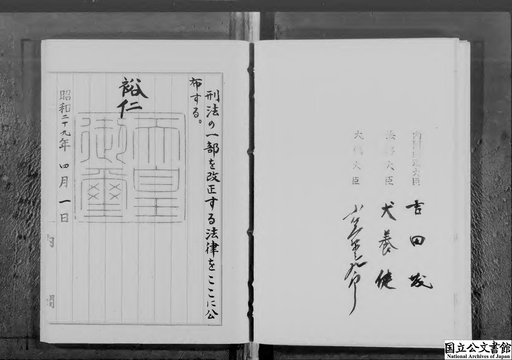 刑法の一部を改正する法律をここに公
布する。
裕仁
天皇
御璽
昭和二十九年四月一日
内閣総理大臣 吉田茂
法務大臣 犬養健
大蔵大臣 小笠原三九郎
国立公文書館
National Archives of Japan